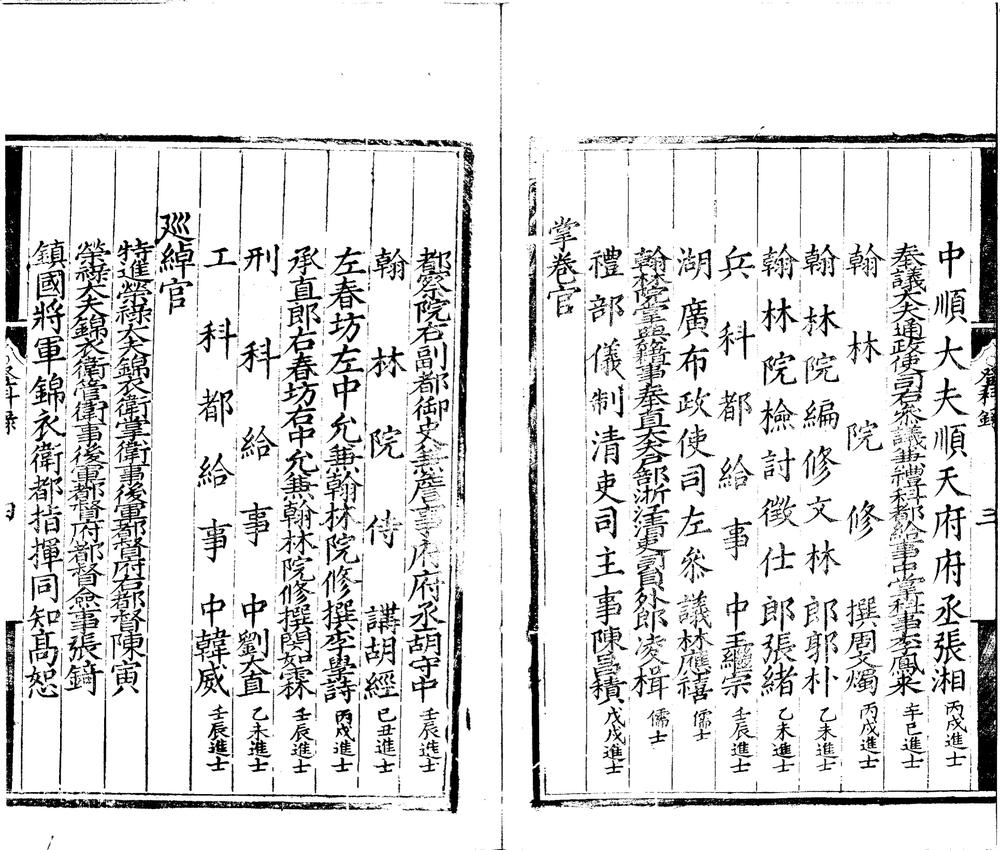 中順大夫順天府府丞張湘 丙戌進士
奉議大夫通政使司右叅議兼禮科都給事中掌科事李鳳來 辛巳進士
翰林院修撰周文燭 丙戌進士
翰林院編修文林郎郭朴 乙未進士
翰林院檢討徵仕郎張緒 乙未進士
兵科都給事中王繼宗 壬辰進士
湖廣布政使司左叅議林應禧 儒士
翰林院掌典籍事奉直大夫戶部浙江清吏司員外郎凌楫 儒士
禮部儀制清吏司主事陳積 戊戌進士
掌卷官
都察院右副都御史兼詹事府府丞胡守中 壬辰進士
翰林院侍講胡經 己丑進士
左春坊左中允兼翰林院修撰李學詩 丙戌進士
承直郎右春坊右中允兼翰林院修撰閔如霖 壬辰進士
刑科給事中劉大直 乙未進士
工科都給事中韓威 壬辰進士
巡綽官
特進榮祿大夫錦衣衛掌衛事後軍都督府右都督陳寅
榮祿大夫錦衣衛管衛事後軍都督府都督僉事張錡
鎮國將軍錦衣衛都指揮同知高恕